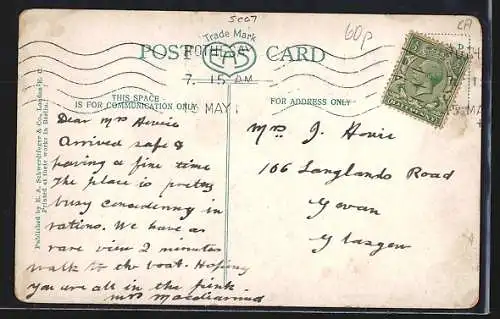 SC07
60p
CA
Trade Mark
EAS
POST CARD
ROTHESAY
7. 15 AM
15 MAY
THIS SPACE
IS FOR COMMUNICATION ONLY.
FOR ADDRESS ONLY
Published by E. A. Schwerdtfeger & Co., London, E. C.
Printed at their works in Berlin.
Dear Mrs Howie
Arrived safe &
having a fine time
The place is pretty
busy considering in
rations. We have as
rare view 2 minutes
walk to the boat. Hoping
you are all in the pink
Mrs Macdiarmid
Mrs J. Howie
166 Langlands Road
Govan
Glasgow